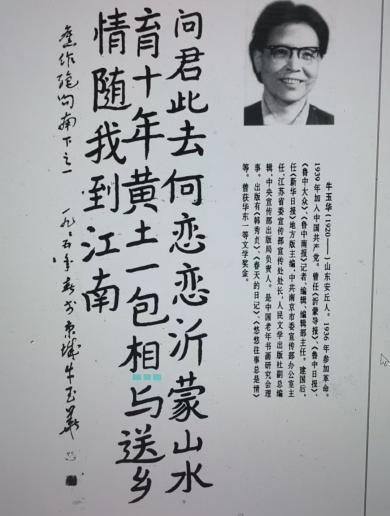 牛玉华(1920—)山东安丘人。1936年参加革命。
1939年加入中国共产党。曾任《沂蒙导报》、《鲁中日报》、
《鲁中大众》、《鲁中南报》记者、编辑、编辑部主任。建国后,
任《新华日报》地方版主编,中共南京市委宣传部办公室主
任,江苏省委宣传部宣传处处长,人民文学出版社副总编
辑,中央宣传部出版局负责人。是中国老年书画研究会理
事。出版有《韩秀贞》、《春天的日记》、《悠悠往事总是情》
等。曾获华东一等文学奖金。
问君此去何恋恋沂蒙山水
育十年黄土一包相与送乡
情随我到江南
舊作绝句南下之一 一九 五年 京城牛玉华